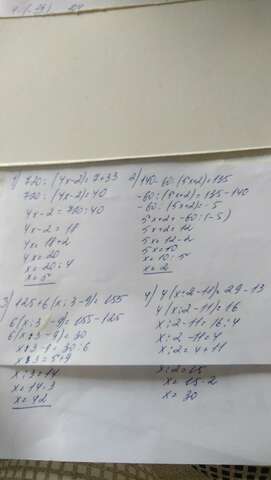 1) 720 : (4x-2) = 7+33
720 : (4x-2) = 40
4x-2 = 720:40
4x-2 = 18
4x = 18+2
4x = 20
x = 20:4
x = 5
2) 140-60:(5x+2)=135
-60:(5x+2)=135-140
-60:(5x+2)=-5
5x+2=-60:(-5)
5x+2=12
5x=12-2
5x=10
x=10:5
x=2
3) 125+6(x:3-9)=155
6(x:3-9)=155-125
6(x:3-9)=30
x:3-9=30:6
x:3=5+9
x:3=14
x=14·3
x=42
4) 4(x:2-11)=29-13
4(x:2-11)=16
x:2-11=16:4
x:2-11=4
x:2=4+11
x:2=15
x=15·2
x=30